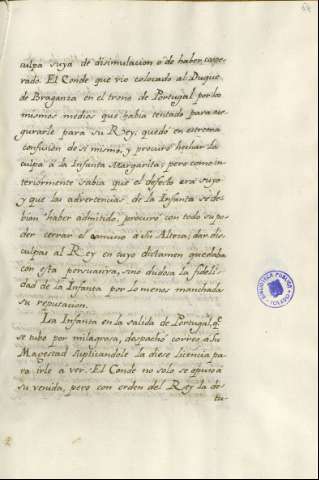 culpa suya de disimulacion ó de haber coope-
rado. El Conde que vio colocado al Duque
de Braganza en el trono de Portugal por los
mismos medios que habia tentado para ase-
gurarle para su Rey, quedó en estrema
confusion de si mismo, y procuró hechar la
culpa à la Infanta Margarita; pero como in-
teriormente sabia que el defecto era suyo
y que las advertencias de la Infanta se de-
bian haber admitido, procuró con todo su po-
der cerrar el camino à Su Alteza; dar dis-
culpas al Rey en cuyo dictamen quedaba
con esta persuasiva, sino dudosa la fideli-
dad de la Infanta por lo menos manchada
su reputacion.
La Infanta en la salida de Portugal, q.e
se tubo por milagrosa, despachó correo à Su
Magestad suplicandole la diese licencia pa-
ra irle a ver. El Conde no solo se opuso à
su venida, pero con orden del Rey la de-
tu-
BIBLIOTECA PUBLICA
TOLEDO